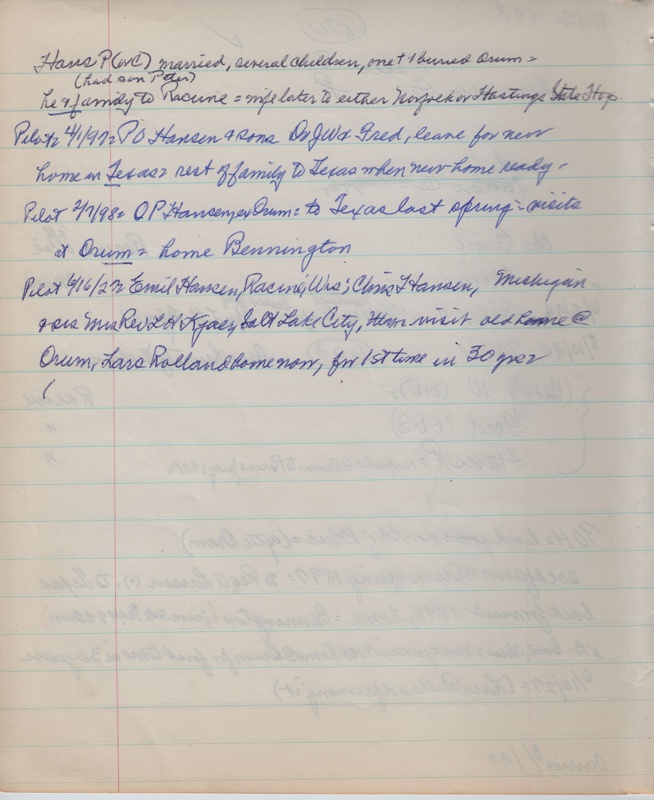 Hans P (or C) married, several children, one + + buried Orum =
(had son Peter)
he & family to Racine = wife later to either Norfolk or Hastings State Hosp.
Pilot 4/1/97 = P O Hansen & sons Dr J W & Fred, leave for new
home in Texas = rest of family to Texas when new home ready -
Pilot 2/7/98 = O P Hansen, ex Orum = to Texas last spring - visits
at Orum = home Bennington
Pilot 6/16/27 = Emil Hansen, Racine, Wis; Chris Hansen, Michigan
& sis Mrs Rev L H Kjaer, Salt Lake City, visit old home @
Orum, Lars Rolland home now, for 1st time in 30 yrs
(